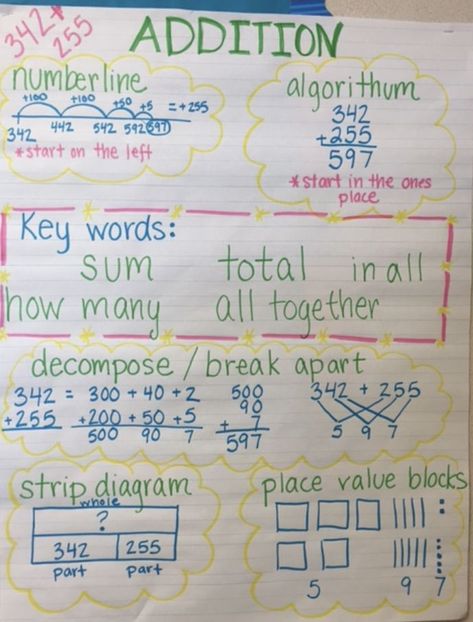 342+
255
ADDITION
numberline
+100 +100 +50 +5 =+255
342 442 542 592 597
*start on the left
algorithum
342
+255
597
*start in the ones
place
Key words:
sum total in all
how many all together
decompose / break apart
342 = 300 + 40 + 2
+255 +200 + 50 +5
500 90 7
500
90
+ 7
597
342 + 255
5 9 7
strip diagram
whole
?
342 255
part part
place value blocks
5 9 7